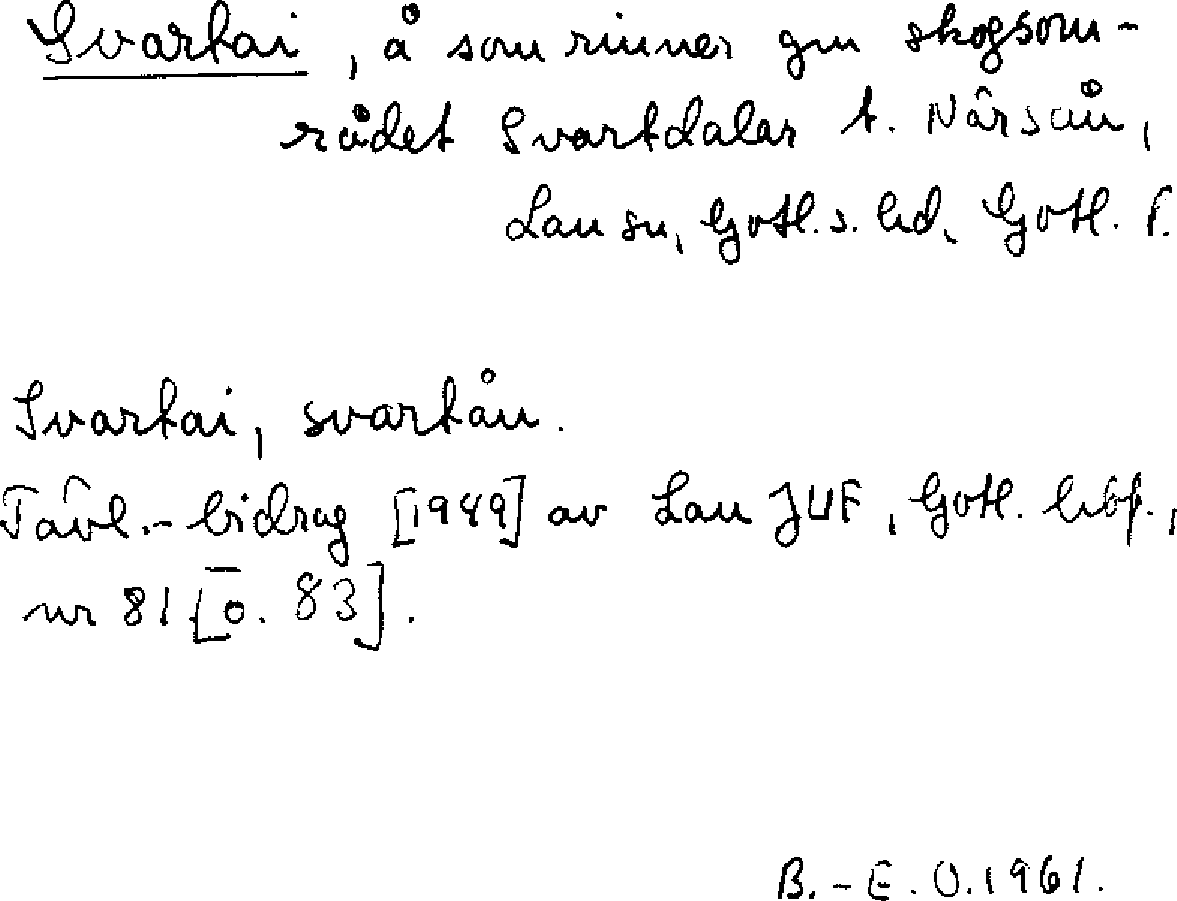 Svartai, å som rinner gm skogsom-
rådet Svartdalar t. Närsån,
Lau sn, Gotl.s. hd, Gotl. l.
Svartai, svartån.
Tävl.-bidrag [1949] av Lau JUF, Gotl. hbf.,
nr 81 [o. 83].
B.-E. O. 1961.